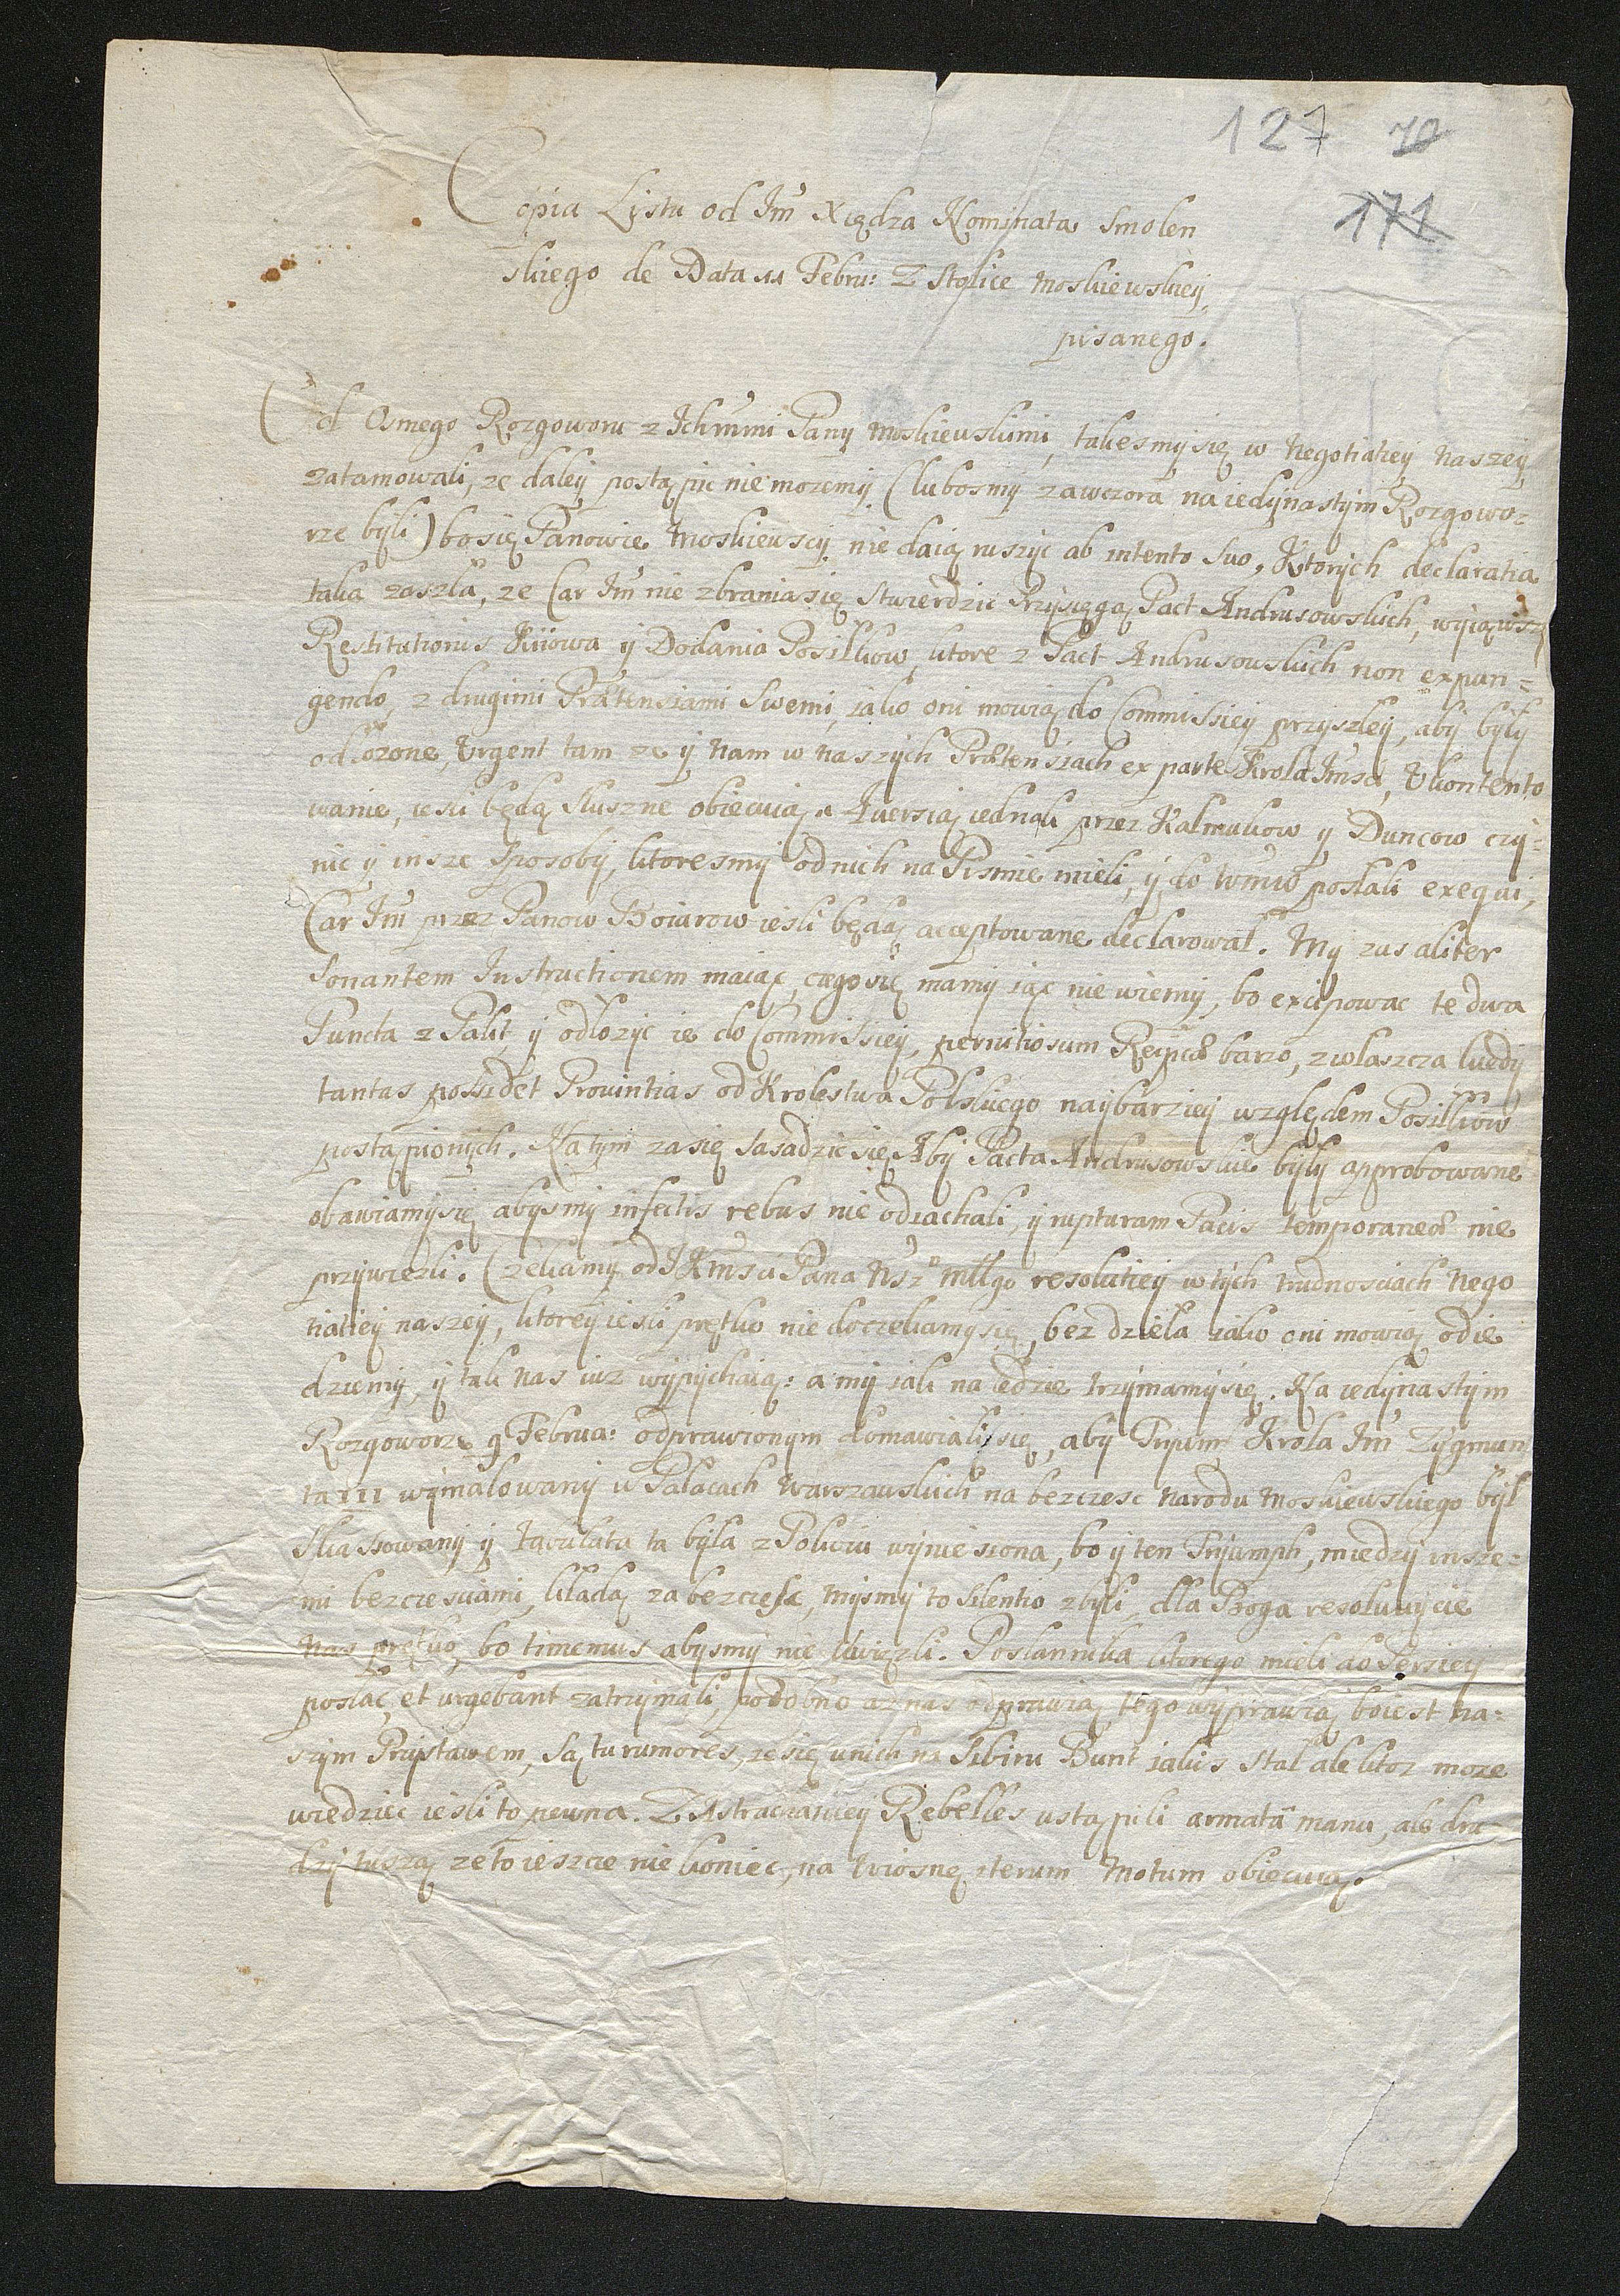 127 70
171
Copia Listu od Jm̃ Xiędza Nominata Smolen
skiego de Data 11 Febru: Z Stolice Moskiewskiey
pisanego.
Od Osmego Rozgoworu z Ichmmi Pany Moskiewskimi, takesmy się w Negotiatiey Naszey
zatamowali, ze daley postąpic nie mozemy (lubosmy zawczora na iedynastym Rozgowo=
rze byli) bo się Panowie Moskiewscy nie daią ruszyc ab intento suo, Ktorych declaratia
taka zaszła, ze Car Jm̃ nie zbrania się stwierdzic Przysięgą Pact Andrusowskich, wyiąwszy
Restitutionis Kiiowa y Dodania Posiłkow, ktore z Pact Andrusowskich non expun=
gendo, z drugimi Prætensiami Swemi, iako oni mowią do Commissiey przyszłey, aby były
odłozone, Urgent tam ze y Nam w Naszych Prætensiach ex parte Krola Jm̃sci, Ukontento
wanie, iesli będą słuszne obiecuią. Aversią iednak przez Kałmukow y Duncow czy=
nic y insze sposoby, ktoresmy od nich na Pismie mieli, y do posłali exequi,
Car Jm̃ przez Panow Boiarow iesli będą acceptowane declarował. My zas aliter
sonantem Instructionem maiąc, czego się mamy iąc nie wiemy, bo excipowac te dwa
Puncta z Pakt, y odłozyc ie do Commissiey, pernitiosum Reipub: barzo, zwłaszcza kiedy
tantas possidet Provintias od Krolestwa Polskiego naybarziey względem Posiłkow
postąpionych. Na tym zasię sasadzic się Aby Pacta Andrusowskie były approbowane
obawiamy się abysmy infectis rebus nie odiachali, y rupturam Pacis temporaneæ nie
przywiezli. Czekamy od JKm̃sci Pana Nsz̃o młłgo resolutiey w tych trudnosciach Nego
tiatiey naszey, ktorey iesli prętko nie doczekamy się, bez dzieła iako oni mowią odie
dziemy, y tak Nas iuz wypychaią: a my iak na ledzie trzymamy się. Na iedynastym
Rozgoworze 9 Februa: odprawionym domawiali się, aby Tryum̃ Krola Jm̃ Zygmun
ta III wymalowany w Pałacach Warszawskich na bezczesc Narodu Moskiewskiego był
skassowany y Tabulata ta była z Pokoiu wyniesiona, bo y ten Tryumph, miedzy insze=
mi bezczesciami, kładą za bezczesc, mysmy to silentio zbyli, dla Boga resolwuycie
Nas prętko, bo timemus abysmy nie uwięzli. Posłannika ktorego mieli do Persiey
posłac, et urgebant zatrzymali, podobno az nas odprawią, tego wyprawią bo iest na=
szym Przystawem, Są tu rumores, ze się u nich na Sibiru Bunt iakis stał ale ktoz moze
wiedziec iesli to pewna. Z Astrachanskiey Rebelles ustąpili armatâ manu, ale dru
dzy tuszą ze to ieszcze nie koniec, na Wiosnę iterum Motum obiecuią.